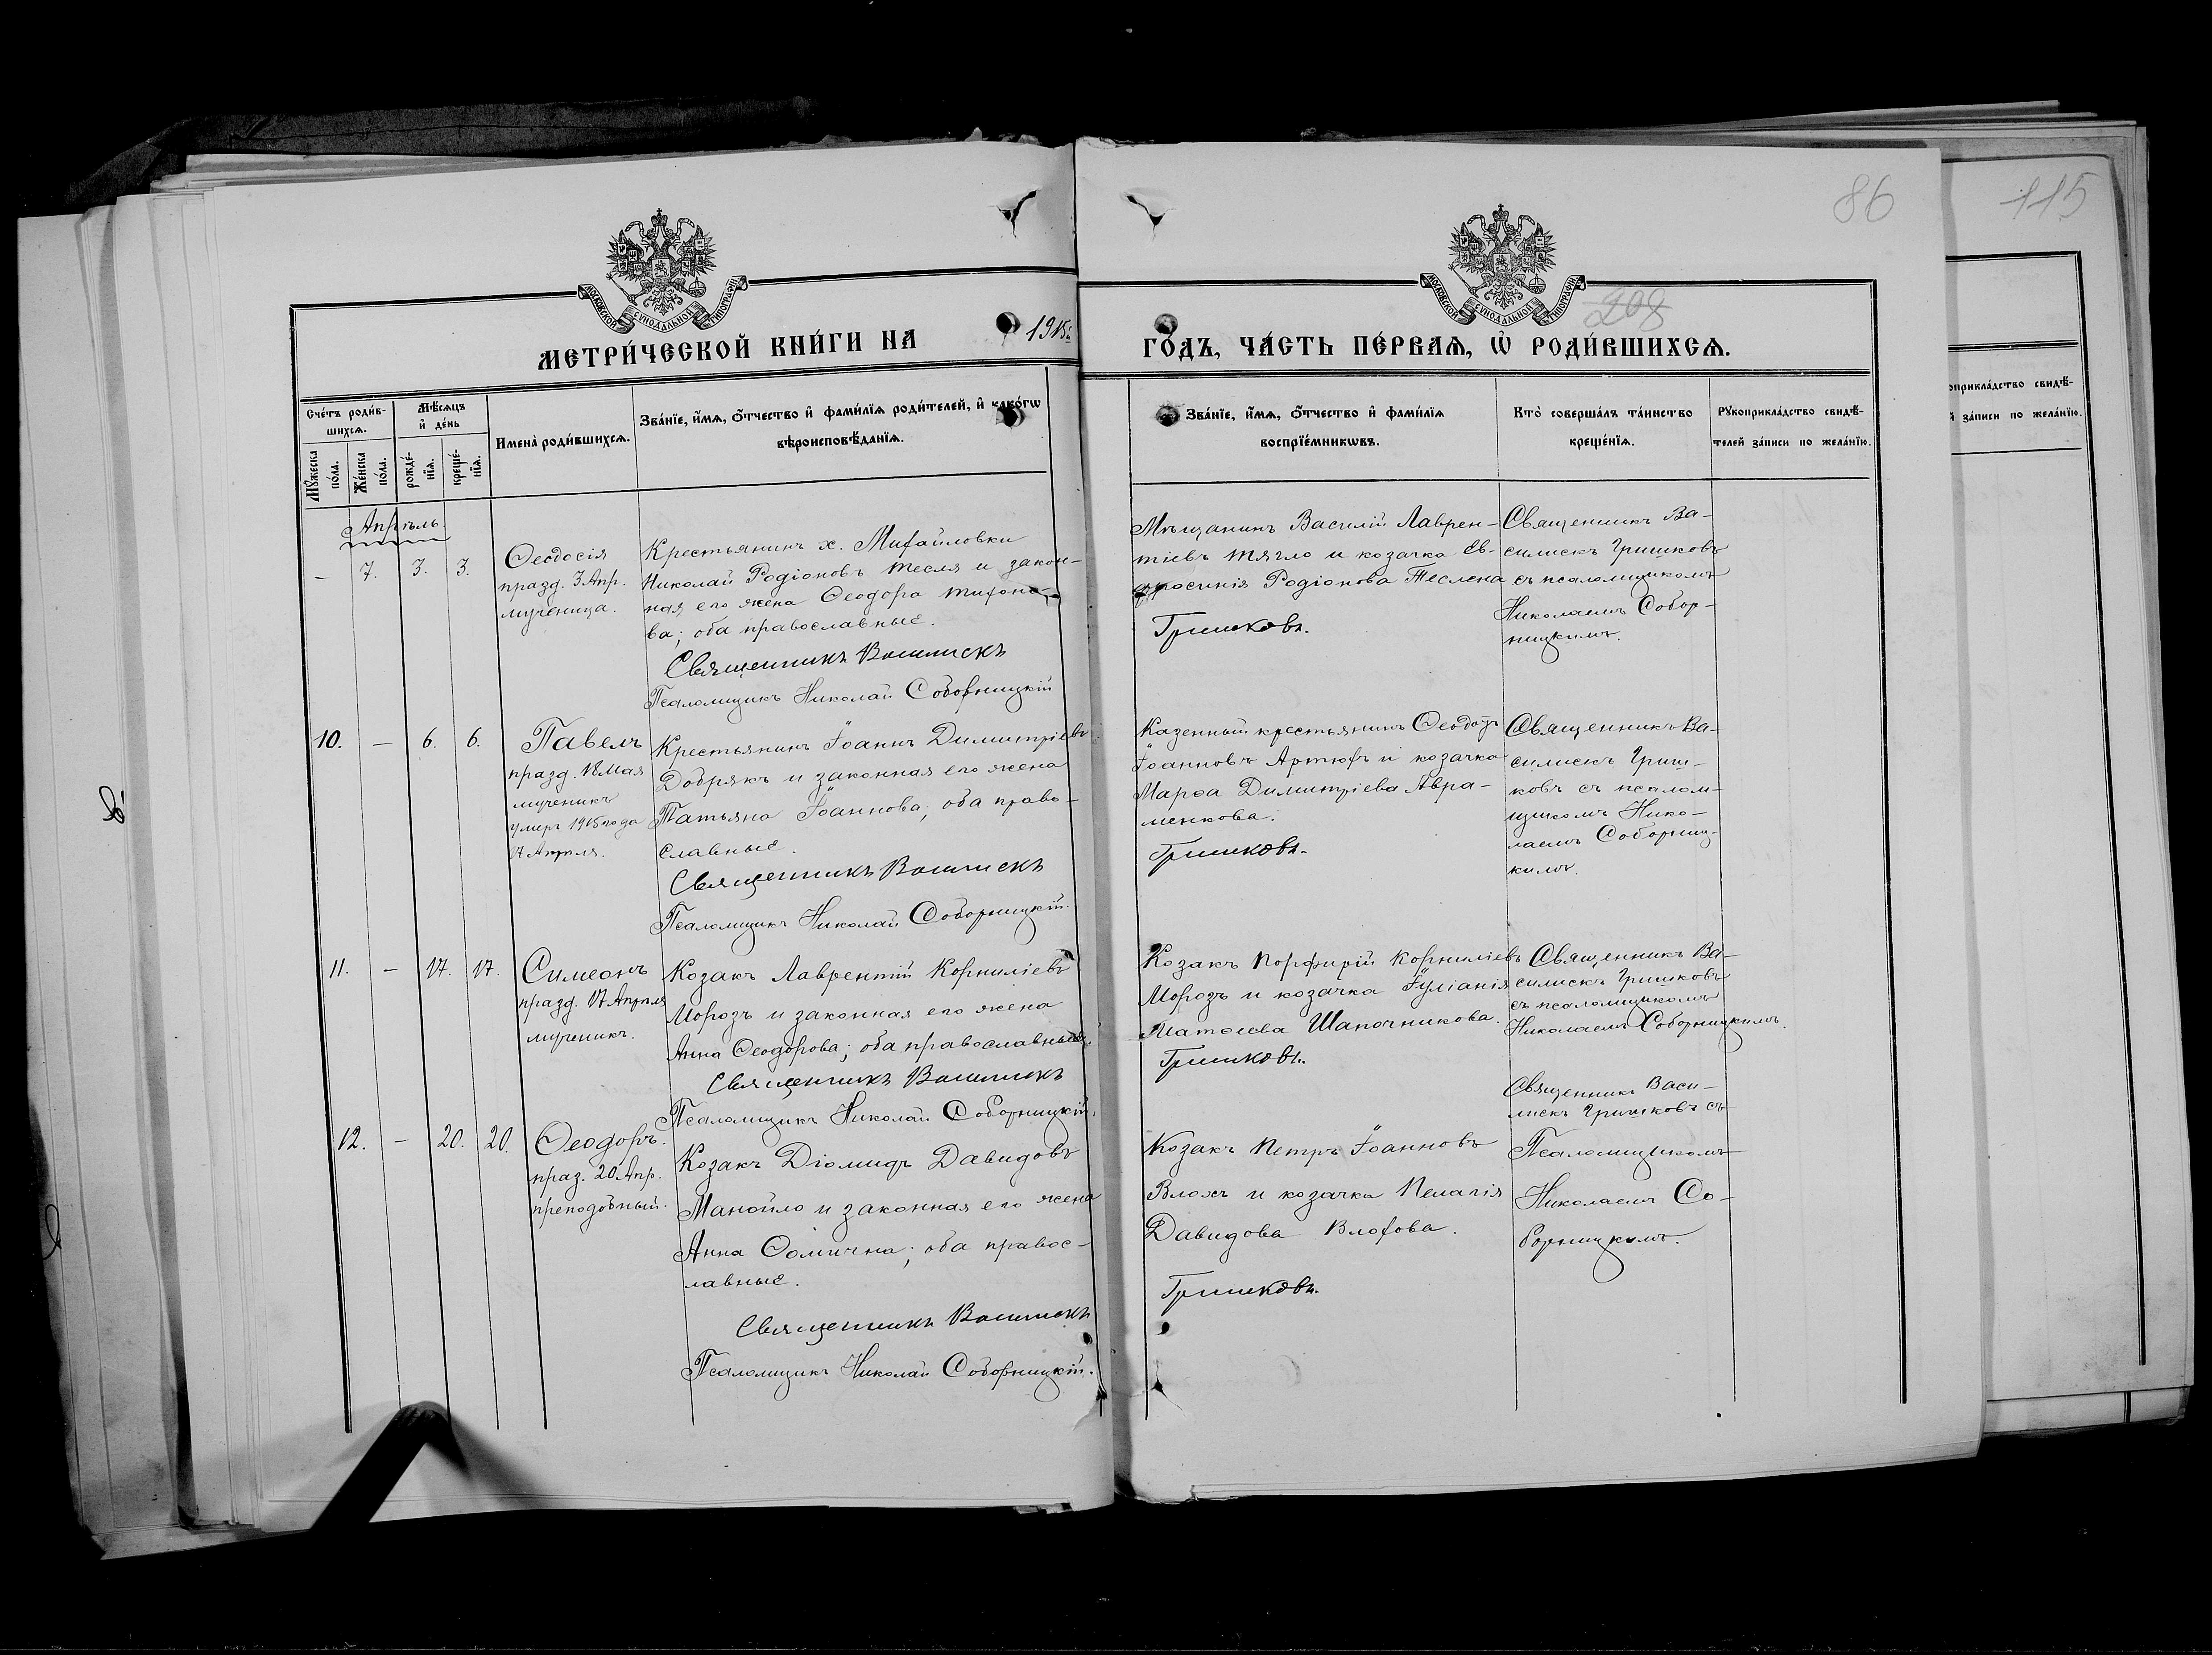 86
115
208
МОСКОВСКОЙ СѴНОДАЛЬНОЙ ТИПОГРАФІИ
МОСКОВСКОЙ СѴНОДАЛЬНОЙ ТИПОГРАФІИ
МЕТРИ́ЧЕСКОЙ КНИ́ГИ НА 1915 ГО́ДЪ, ЧА́СТЬ ПЕ́РВАѦ, Ѡ҆ РОДИ́ВШИХСѦ.
Сче́тъ роди́в-
шихсѧ.
Мꙋ́жеска по́ла.
Же́нска по́ла.
Мѣ́сѧцъ и҆ де́нь
рожде́-
нїѧ.
креще́-
нїѧ.
И҆мена̀ роди́вшихсѧ.
Зва́нїе, и҆́мѧ, ѻ҆́тчество и҆ фами́лїѧ роди́телей, и҆ како́гѡ
вѣроисповѣ́данїѧ.
Зва́нїе, и҆́мѧ, ѻ҆́тчество и҆ фами́лїѧ
воспрїе́мникѡвъ.
Кто̀ соверша́лъ та́инство
креще́нїѧ.
Рꙋкоприкла́дство свидѣ́-
телей за́писи по жела́нїю.
оприкла́дство свидѣ́-
й за́писи по жела́нїю.
Апрѣль
- 7. 3. 3.
Ѳеодосія
празд. 3 Апр.
мученица.
Крестьянинъ х. Михайловки
Николай Родіоновъ Тесля и закон-
ная его жена Ѳеодора Тихоно-
ва; оба православные.
Священникъ Василискъ
Псаломщикъ Николай Соборницкій
Мѣщанинъ Василій Лаврен-
тіевъ Тягло и козачка Ев-
фросинія Родіонова Теслена
Гришковъ.
Священникъ Ва-
силискъ Гришковъ
съ псаломщикомъ
Николаемъ Собор-
ницкимъ.
10. - 6. 6.
Павелъ
празд. 18 Мая
мученикъ
умеръ 1915 года
17 Апрѣля.
Крестьянинъ Іоаннъ Димитріевъ
Добрякъ и законная его жена
Татьяна Іоаннова; оба право-
славные.
Священникъ Василискъ
Псаломщикъ Николай Соборницкій.
Казенный крестьянинъ Ѳеодоръ
Іоанновъ Артюхъ и козачка
Марѳа Димитріева Авра-
менкова.
Гришковъ.
Священникъ Ва-
силискъ Гриш-
ковъ съ псалом-
щикомъ Нико-
лаемъ Соборниц-
кимъ.
11. - 17. 17.
Симеонъ
празд. 17 Апрѣля
мученикъ.
Козакъ Лаврентій Корниліевъ
Морозъ и законная его жена
Анна Ѳеодорова; оба православные.
Священникъ Василискъ
Псаломщикъ Николай Соборницкій.
Козакъ Порфирій Корниліевъ
Морозъ и козачка Іуліанія
Матѳіева Шапочникова.
Гришковъ.
Священникъ Ва-
силискъ Гришковъ
съ псаломщикомъ
Николаемъ Соборницкимъ.
12. - 20. 20.
Ѳеодоръ.
праз. 20 Апр.
преподобный.
Козакъ Діомидъ Давидовъ
Манойло и законная его жена
Анна Ѳомична; оба правос-
лавные.
Священникъ Василискъ
Псаломщикъ Николай Соборницкій.
Козакъ Петръ Іоанновъ
Влохъ и козачка Пелагія
Давидова Влохова.
Гришковъ.
Священникъ Васи-
лискъ Гришковъ съ
Псаломщикомъ
Николаемъ Со-
борницкимъ.